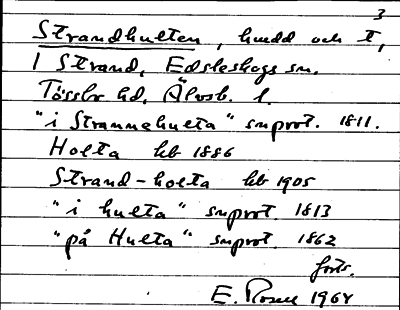 3
Strandhulten, hmdd och t,
I Strand, Edsleskogs sn.
Tössbo hd, Älvsb. l.
"i Strannehulta" snprot. 1811.
Holta hb 1886
Strand-holta hb 1905
"i hulta" snprot. 1813
"på Hulta" snprot. 1862
forts.
E. Rosell 1964